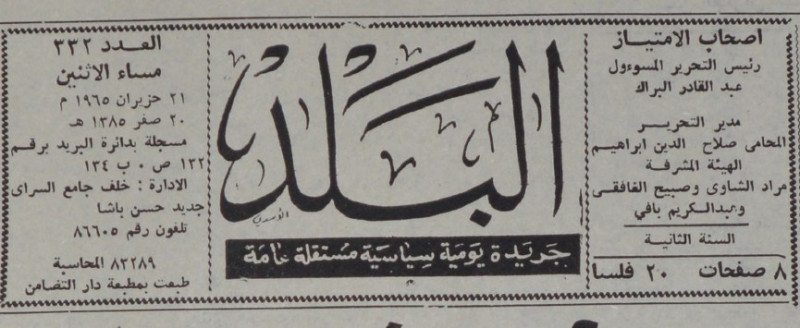 اصحاب الامتياز
رئيس التحرير المسوءول
عبد القادر البراك
مدير التحرير
المحامى صلاح الدين ابراهيم
الهيئة المشرفة
مراد الشاوى وصبيح الغافقى
وعبدالكريم بافي
السنة الثانية
٨ صفحات ٢٠ فلسا
البلد
الأسدي
جريدة يومية سياسية مستقلة عامة
العدد ٣٣٢
مساء الاثنين
٢١ حزيران ١٩٦٥ م
٢٠ صفر ١٣٨٥ هـ
مسجلة بدائرة البريد برقم
١٣٢ ص ٠ ب ١٣٤
الادارة : خلف جامع السراى
جديد حسن باشا
تلغون رقم ٨٦٦٠٥
٨٣٢٨٩ المحاسبة
طبعت بمطبعة دار التضامن